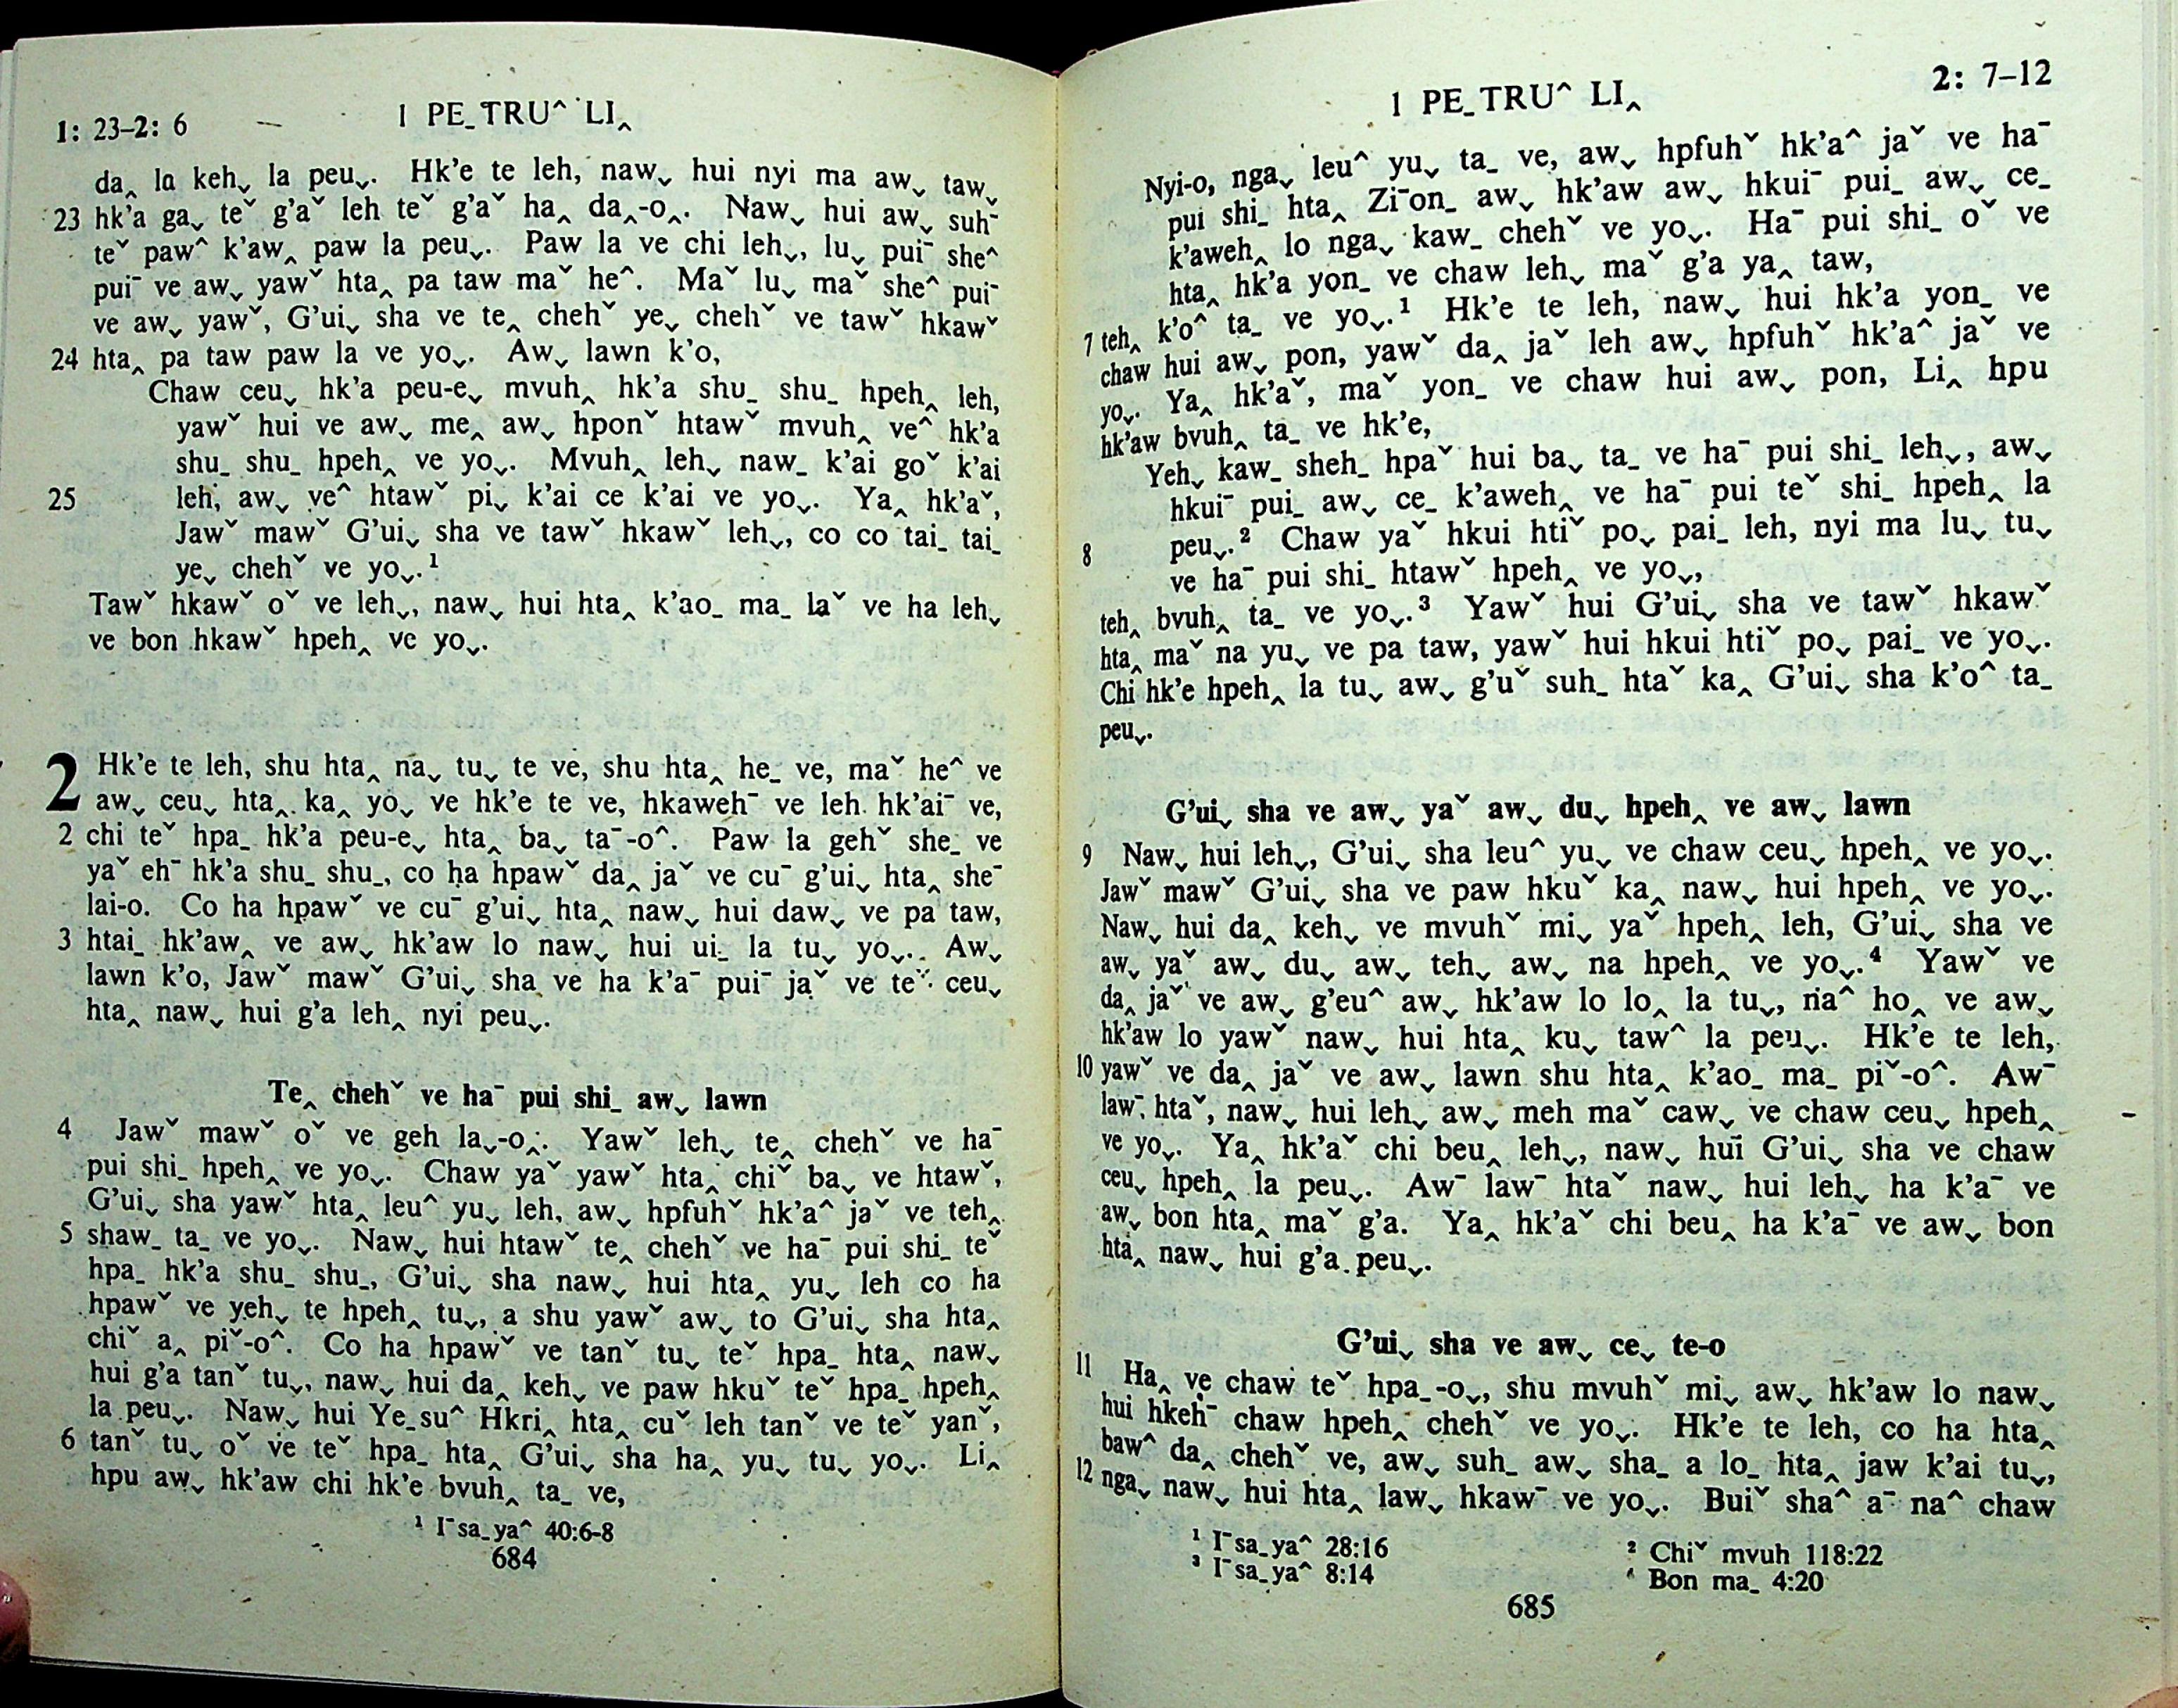 1: 23–2: 6
1 PE_TRU^ LI‸
da‸ la keh⌄ la peu⌄. Hk'e te leh, naw⌄ hui nyi ma aw⌄ taw⌄
23 hk'a ga⌄ teˇ g'aˇ leh teˇ g'aˇ ha‸ da‸-o‸. Naw⌄ hui aw⌄ suh¯
teˇ paw^ k'aw‸ paw la peu⌄. Paw la ve chi leh⌄, lu⌄ pui¯ she^
pui¯ ve aw⌄ yawˇ hta‸ pa taw maˇ he^. Maˇ lu⌄ maˇ she^ pui¯
ve aw⌄ yawˇ, G'ui⌄ sha ve te‸ chehˇ ye⌄ chehˇ ve tawˇ hkawˇ
24 hta‸ pa taw paw la ve yo⌄. Aw⌄ lawn k'o,
Chaw ceu⌄ hk'a peu-e⌄ mvuh‸ hk'a shu_ shu_ hpeh‸ leh,
yawˇ hui ve aw⌄ me‸ aw⌄ hponˇ htawˇ mvuh‸ ve^ hk'a
shu_ shu_ hpeh‸ ve yo⌄. Mvuh‸ leh⌄ naw_ k'ai goˇ k'ai
25 leh, aw⌄ ve^ htawˇ pi⌄ k'ai ce k'ai ve yo⌄. Ya‸ hk'aˇ,
Jawˇ mawˇ G'ui⌄ sha ve tawˇ hkawˇ leh⌄, co co tai_ tai_
ye⌄ chehˇ ve yo⌄.¹
Tawˇ hkawˇ oˇ ve leh⌄, naw⌄ hui hta‸ k'ao_ ma_ laˇ ve ha leh⌄
ve bon hkawˇ hpeh‸ ve yo⌄.
2 Hk'e te leh, shu hta‸ na⌄ tu⌄ te ve, shu hta‸ he_ ve, maˇ he^ ve
aw⌄ ceu⌄ hta‸ ka‸ yo⌄ ve hk'e te ve, hkaweh¯ ve leh hk'ai¯ ve,
2 chi teˇ hpa_ hk'a peu-e⌄ hta‸ ba⌄ ta¯-o^. Paw la gehˇ she_ ve
yaˇ eh¯ hk'a shu_ shu_, co ha hpawˇ da‸ jaˇ ve cu¯ g'ui⌄ hta‸ she¯
lai-o. Co ha hpawˇ ve cu¯ g'ui⌄ hta‸ naw⌄ hui daw⌄ ve pa taw,
3 htai_ hk'aw‸ ve aw⌄ hk'aw lo naw⌄ hui ui_ la tu⌄ yo⌄. Aw⌄
lawn k'o, Jawˇ mawˇ G'ui⌄ sha ve ha k'a¯ pui¯ jaˇ ve teˇ ceu⌄
hta‸ naw⌄ hui g'a leh‸ nyi peu⌄.
Te‸ chehˇ ve ha¯ pui shi_ aw⌄ lawn
4 Jawˇ mawˇ oˇ ve geh la⌄-o‸. Yawˇ leh⌄ te‸ chehˇ ve ha¯
pui shi_ hpeh‸ ve yo⌄. Chaw yaˇ yawˇ hta‸ chiˇ ba⌄ ve htawˇ,
G'ui⌄ sha yawˇ hta‸ leu^ yu⌄ leh, aw⌄ hpfuhˇ hk'a^ jaˇ ve teh‸
5 shaw_ ta_ ve yo⌄. Naw⌄ hui htawˇ te‸ chehˇ ve ha¯ pui shi_ teˇ
hpa_ hk'a shu_ shu_, G'ui⌄ sha naw⌄ hui hta‸ yu⌄ leh co ha
hpawˇ ve yeh⌄ te hpeh‸ tu⌄, a shu yawˇ aw⌄ to G'ui⌄ sha hta‸
chiˇ a‸ piˇ-o^. Co ha hpawˇ ve tanˇ tu⌄ teˇ hpa_ hta‸ naw⌄
hui g'a tanˇ tu⌄, naw⌄ hui da‸ keh⌄ ve paw hkuˇ teˇ hpa_ hpeh‸
la peu⌄. Naw⌄ hui Ye_su^ Hkri‸ hta‸ cuˇ leh tanˇ ve teˇ yanˇ,
6 tanˇ tu⌄ oˇ ve teˇ hpa_ hta‸ G'ui⌄ sha ha‸ yu⌄ tu⌄ yo⌄. Li‸
hpu aw⌄ hk'aw chi hk'e bvuh‸ ta_ ve,
¹ I¯sa_ya^ 40:6-8
684
1 PE_TRU^ LI‸
2: 7–12
Nyi-o, nga⌄ leu^ yu⌄ ta_ ve, aw⌄ hpfuhˇ hk'a^ jaˇ ve ha¯
pui shi_ hta‸ Zi¯on_ aw⌄ hk'aw aw⌄ hkui¯ pui_ aw⌄ ce_
k'aweh‸ lo nga⌄ kaw_ chehˇ ve yo⌄. Ha¯ pui shi_ oˇ ve
hta‸ hk'a yon_ ve chaw leh⌄ maˇ g'a ya‸ taw,
7 teh‸ k'o^ ta_ ve yo⌄.¹ Hk'e te leh, naw⌄ hui hk'a yon_ ve
chaw hui aw⌄ pon, yawˇ da‸ jaˇ leh aw⌄ hpfuhˇ hk'a^ jaˇ ve
yo⌄. Ya‸ hk'aˇ, maˇ yon_ ve chaw hui aw⌄ pon, Li‸ hpu
hk'aw bvuh‸ ta_ ve hk'e,
Yeh⌄ kaw_ sheh_ hpaˇ hui ba⌄ ta_ ve ha¯ pui shi_ leh⌄, aw⌄
hkui¯ pui_ aw⌄ ce_ k'aweh‸ ve ha¯ pui teˇ shi_ hpeh‸ la
8 peu⌄.² Chaw yaˇ hkui htiˇ po⌄ pai_ leh, nyi ma lu⌄ tu⌄
ve ha¯ pui shi_ htawˇ hpeh‸ ve yo⌄,
teh‸ bvuh‸ ta_ ve yo⌄.³ Yawˇ hui G'ui⌄ sha ve tawˇ hkawˇ
hta‸ maˇ na yu⌄ ve pa taw, yawˇ hui hkui htiˇ po⌄ pai_ ve yo⌄.
Chi hk'e hpeh‸ la tu⌄ aw⌄ g'uˇ suh_ htaˇ ka‸ G'ui⌄ sha k'o^ ta_
peu⌄.
G'ui⌄ sha ve aw⌄ yaˇ aw⌄ du⌄ hpeh‸ ve aw⌄ lawn
9 Naw⌄ hui leh⌄, G'ui⌄ sha leu^ yu⌄ ve chaw ceu⌄ hpeh‸ ve yo⌄.
Jawˇ mawˇ G'ui⌄ sha ve paw hkuˇ ka‸ naw⌄ hui hpeh‸ ve yo⌄.
Naw⌄ hui da‸ keh⌄ ve mvuhˇ mi⌄ yaˇ hpeh‸ leh, G'ui⌄ sha ve
aw⌄ yaˇ aw⌄ du⌄ aw⌄ teh⌄ aw⌄ na hpeh‸ ve yo⌄.⁴ Yawˇ ve
da‸ jaˇ ve aw⌄ g'eu^ aw⌄ hk'aw lo lo‸ la tu⌄, na^ ho‸ ve aw⌄
hk'aw lo yawˇ naw⌄ hui hta‸ ku⌄ taw^ la peu⌄. Hk'e te leh,
10 yawˇ ve da‸ jaˇ ve aw⌄ lawn shu hta‸ k'ao_ ma_ piˇ-o^. Aw¯
law¯ htaˇ, naw⌄ hui leh⌄ aw⌄ meh maˇ caw⌄ ve chaw ceu⌄ hpeh‸
ve yo⌄. Ya‸ hk'aˇ chi beu‸ leh⌄, naw⌄ hui G'ui⌄ sha ve chaw
ceu⌄ hpeh‸ la peu⌄. Aw¯ law¯ htaˇ naw⌄ hui leh⌄ ha k'a¯ ve
aw⌄ bon hta‸ maˇ g'a. Ya‸ hk'aˇ chi beu‸ ha k'a¯ ve aw⌄ bon
hta‸ naw⌄ hui g'a peu⌄.
G'ui⌄ sha ve aw⌄ ce⌄ te-o
11 Ha‸ ve chaw teˇ hpa_-o⌄, shu mvuhˇ mi⌄ aw⌄ hk'aw lo naw⌄
hui hkeh¯ chaw hpeh‸ chehˇ ve yo⌄. Hk'e te leh, co ha hta‸
baw^ da‸ chehˇ ve, aw⌄ suh_ aw⌄ sha_ a lo_ hta‸ jaw k'ai tu⌄,
12 nga⌄ naw⌄ hui hta‸ law⌄ hkaw¯ ve yo⌄. Buiˇ sha^ a¯ na^ chaw
¹ I¯sa_ya^ 28:16
² Chiˇ mvuh 118:22
³ I¯sa_ya^ 8:14
⁴ Bon ma_ 4:20
685